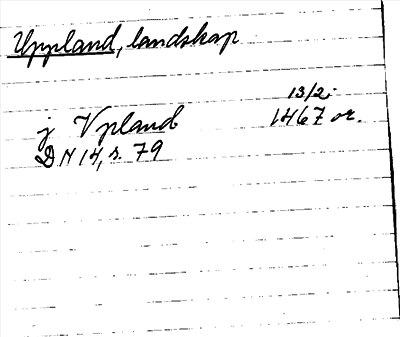 Uppland, landskap
13/2
j Vpland 1467 or.
DN 14, s. 79